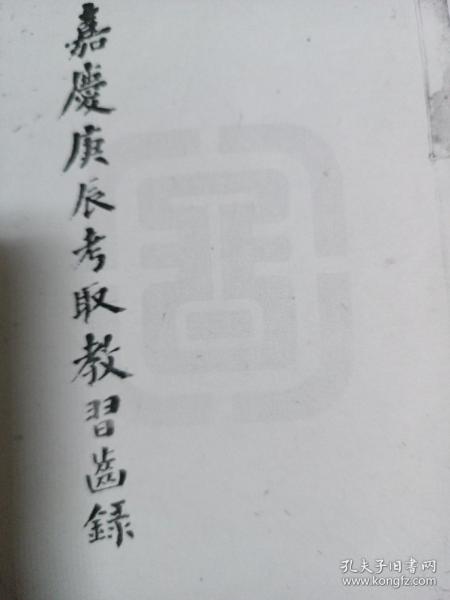 嘉慶庚辰考取教習齒錄
孔夫子旧书网
www.kongfz.com